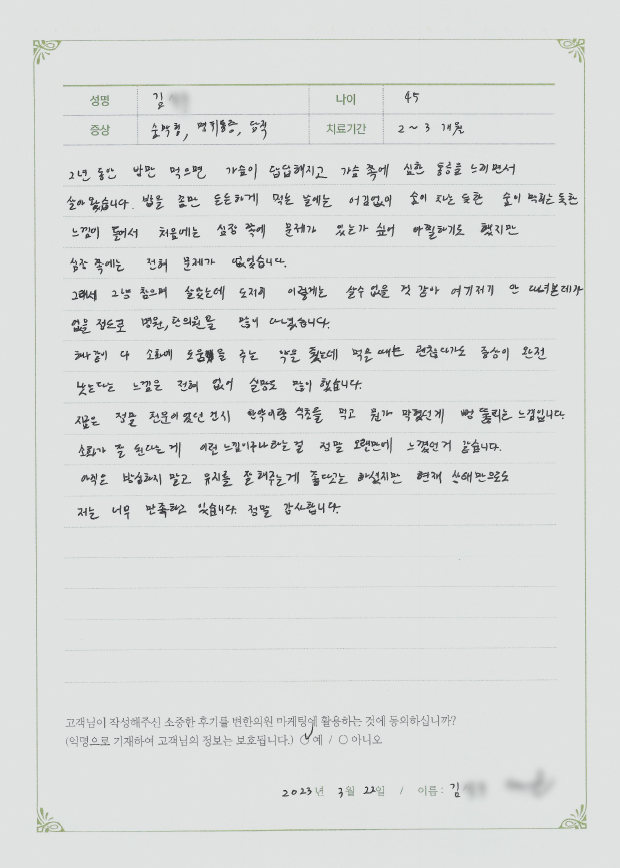 성명 김 나이 45
증상 숨막힘, 명치통증, 담적 치료기간 2~3 개월
2년 동안 밥만 먹으면 가슴이 답답해지고 가슴 쪽에 심한 통증을 느끼면서
살아 왔습니다. 밥을 좀만 든든하게 먹는 날에는 어김없이 숨이 차는 듯한 숨이 막히는 듯한
느낌이 들어서 처음에는 심장 쪽에 문제가 있는가 싶어 아찔하기도 했지만
심장 쪽에는 전혀 문제가 없었습니다.
그래서 그냥 참으며 살았는데 도저히 이렇게는 살수 없을 것 같아 여기저기 안 다녀본데가
없을 정도로 병원, 한의원을 많이 다녔습니다.
하나같이 다 소화에 도움을 주는 약을 줬는데 먹을 때는 괜찮다가도 증상이 완전
낫는다는 느낌은 전혀 없어 실망도 많이 했습니다.
지금은 정말 전문이었던 건지 한약이랑 약초를 먹고 뭔가 막혔던게 뻥 뚫리는 느낌입니다.
소화가 잘 된다는 게 이런 느낌이구나 라는 걸 정말 오랜만에 느꼈던거 같습니다.
아직은 방심하지 말고 유지를 잘 해주는게 좋다고는 하셨지만 현재 상태만으로도
저는 너무 만족하고 있습니다. 정말 감사합니다.
고객님이 작성해주신 소중한 후기를 변한의원 마케팅에 활용하는 것에 동의하십니까?
(익명으로 기재하여 고객님의 정보는 보호됩니다.) ○ 예 / ○ 아니오
2023년 3월 22일 / 이름 : 김